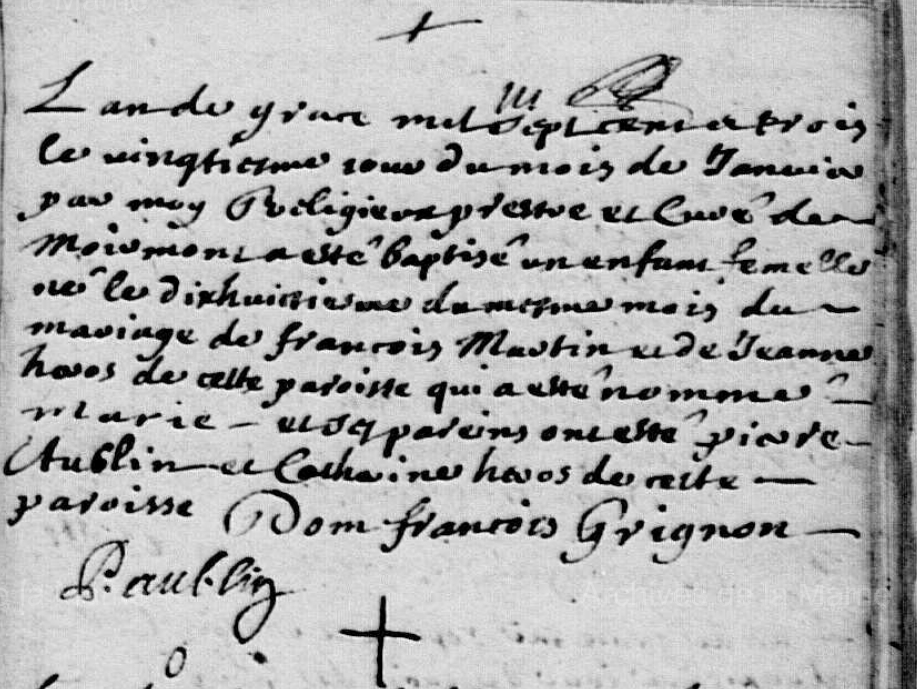 L an de grace mil Sept cent et trois
le vingtiesme iour du mois de Janvier
par moy Religieux prestre et Curé de
Moirmont a esté baptisé un enfant femelle
né le dixhuictiesme du mesme mois du
mariage de francois Martin et de Jeanne
heros de cette paroisse qui a esté nommé
marie - et ses pareins ont esté pierre
Aublin et Catherine heros de cette
paroisse Dom francois Grignon
P. aublin